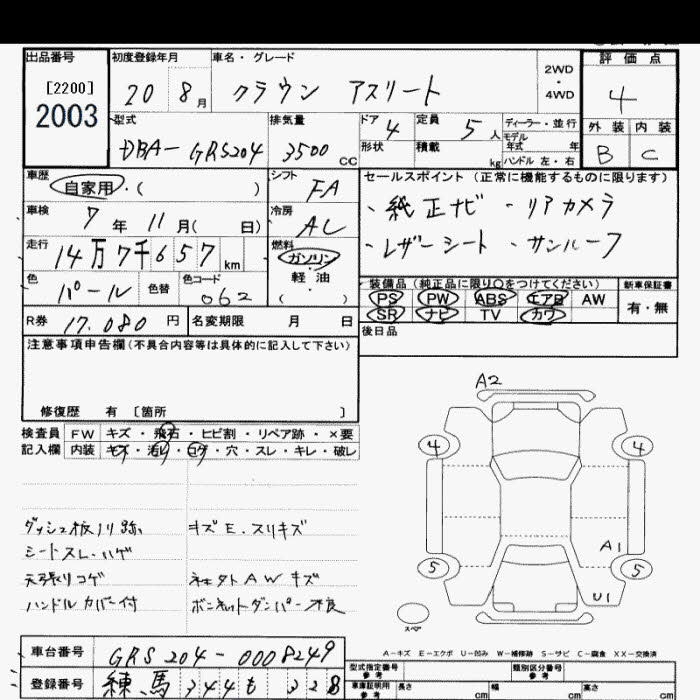 出品番号 初度登録年月 車名・グレード 2WD・4WD 評価点
[2200]
2003 20 8月 クラウン アスリート 4
型式 排気量 ドア 4 定員 5人 ディーラー・並行 外装 内装
DBA-GRS204 3500CC 形状 積載 kg モデル年式 年 B C
ハンドル 左・右
車歴 自家用・( ) シフト FA セールスポイント (正常に機能するものに限ります)
車検 7年11月( 日) 冷房 AC ・純正ナビ ・リアカメラ
走行 14万7千657km 燃料 ガソリン・軽油・( ) ・レザーシート ・サンルーフ
色 パール 色替 色コード 062 装備品 (純正品に限り○をつけてください) 新車保証書
PS PW ABS エアB AW 有・無
SR ナビ TV カワ
R券 17.080円 名変期限 月 日 後日品
注意事項申告欄(不具合内容等は具体的に記入して下さい)
修復歴 有 [箇所 ]
検査員 FW キズ・飛石・ヒビ割・リペア跡・×要
記入欄 内装 キズ・汚レ・コゲ・穴・スレ・キレ・破レ
A2
4 4
5 A1 5
U1
スペア
ダッシュ板ノリ跡 キズE.スリキズ
シートスレ.ハゲ
天張りコゲ AWキズ
ハンドルカバー付 ボンネットダンパー不良
A-キズ E-エクボ U-凹み W-補修跡 S-サビ C-腐食 XX-交換済
車台番号 GRS204-0008249 型式指定番号 参考 類別区分番号 参考
登録番号 練馬344も328 車庫証明用 参考 長さ cm 幅 cm 高さ cm